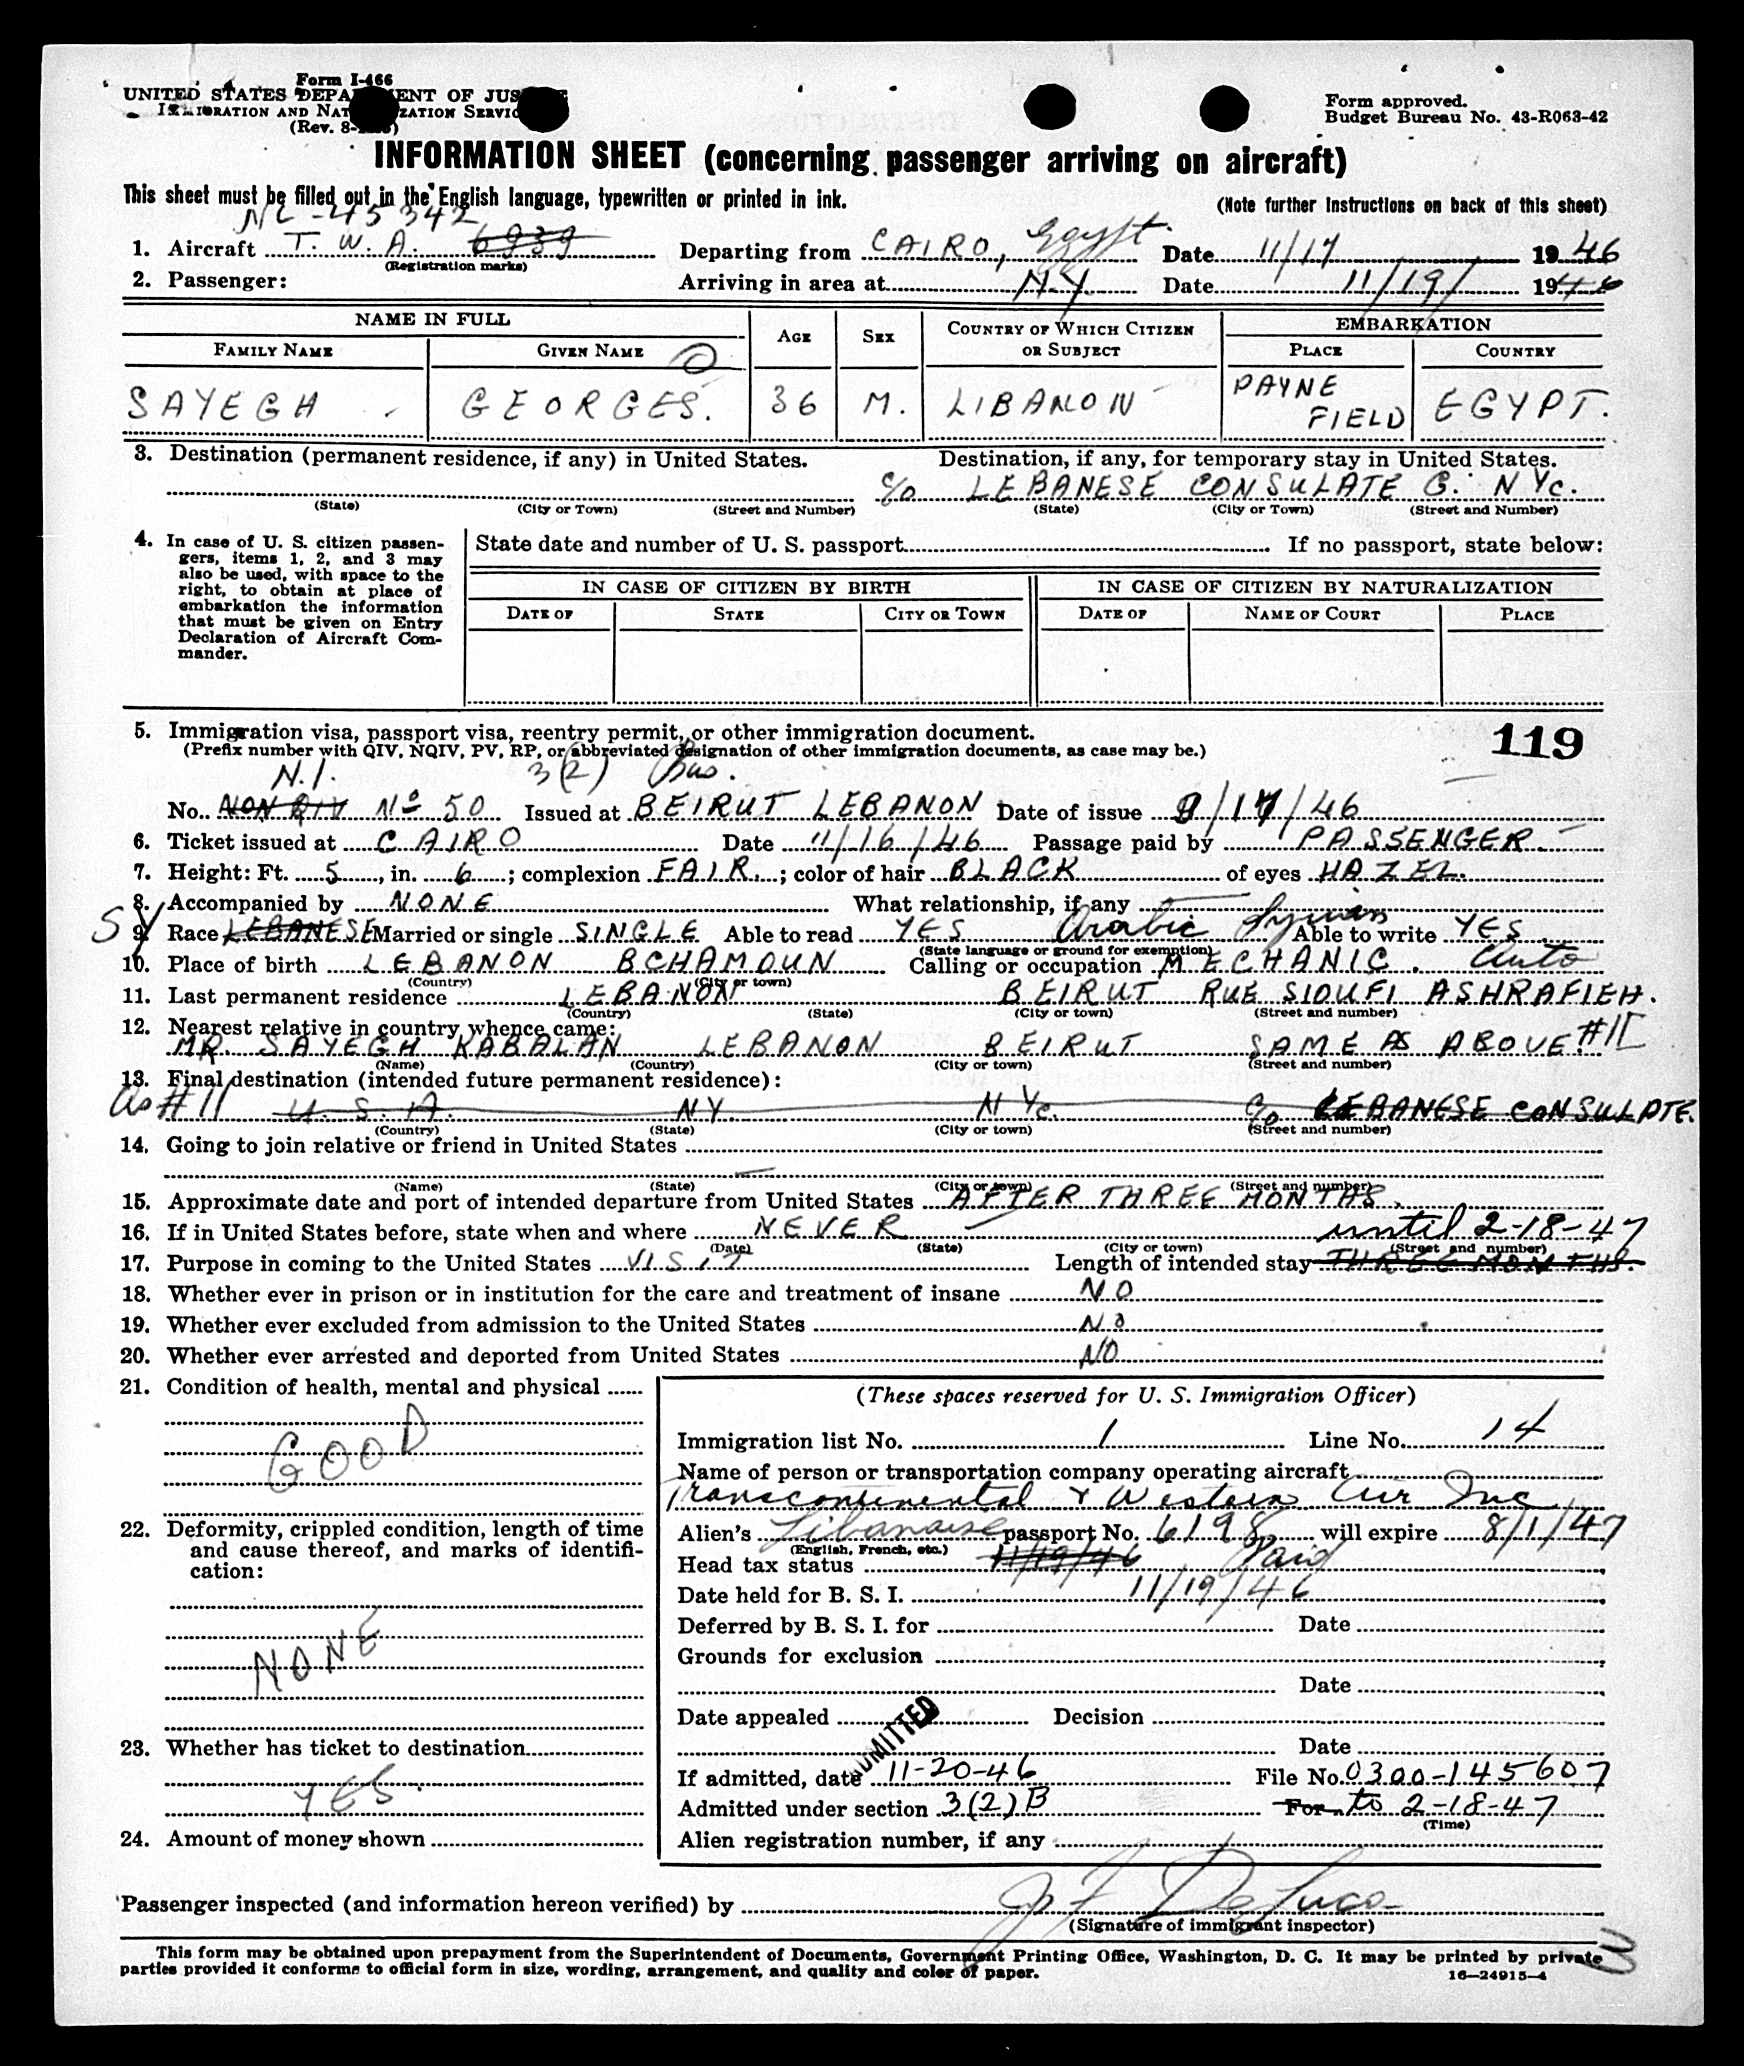 Form I-466
UNITED STATES DEPARTMENT OF JUSTICE
IMMIGRATION AND NATURALIZATION SERVICE
(Rev. 8-
Form approved.
Budget Bureau No. 43-R063-42
INFORMATION SHEET (concerning passenger arriving on aircraft)
This sheet must be filled out in the English language, typewritten or printed in ink.
(Note further instructions on back of this sheet)
NC-45342
1. Aircraft T. W. A. 6939 Departing from CAIRO, Egypt. Date 11/17 1946
(Registration marks)
2. Passenger: Arriving in area at N.Y. Date 11/19/ 1946
NAME IN FULL AGE SEX COUNTRY OF WHICH CITIZEN OR SUBJECT EMBARKATION
FAMILY NAME GIVEN NAME PLACE COUNTRY
SAYEGH GEORGES. 36 M. LIBANON PAYNE FIELD EGYPT.
3. Destination (permanent residence, if any) in United States. Destination, if any, for temporary stay in United States.
c/o LEBANESE CONSULATE G. NYc.
(State) (City or Town) (Street and Number) (State) (City or Town) (Street and Number)
4. In case of U. S. citizen passen-
gers, items 1, 2, and 3 may
also be used, with space to the
right, to obtain at place of
embarkation the information
that must be given on Entry
Declaration of Aircraft Com-
mander.
State date and number of U. S. passport If no passport, state below:
IN CASE OF CITIZEN BY BIRTH IN CASE OF CITIZEN BY NATURALIZATION
DATE OF STATE CITY OR TOWN DATE OF NAME OF COURT PLACE
5. Immigration visa, passport visa, reentry permit, or other immigration document.
(Prefix number with QIV, NQIV, PV, RP, or abbreviated designation of other immigration documents, as case may be.)
119
N.I. 3(2) Bus.
No. NON QIV Nº 50 Issued at BEIRUT LEBANON Date of issue 9/17/46
6. Ticket issued at CAIRO Date 11/16/46 Passage paid by PASSENGER
7. Height: Ft. 5, in. 6; complexion FAIR.; color of hair BLACK of eyes HAZEL.
8. Accompanied by NONE What relationship, if any
SY
9. Race LEBANESE Married or single SINGLE Able to read YES Arabic Syrian Able to write YES
(State language or ground for exemption)
10. Place of birth LEBANON BCHAMOUN Calling or occupation MECHANIC. Auto
(Country) (City or town)
11. Last permanent residence LEBANON BEIRUT RUE SIOUFI ASHRAFIEH.
(Country) (State) (City or town) (Street and number)
12. Nearest relative in country whence came:
MR. SAYEGH KABALAN LEBANON BEIRUT SAME AS ABOVE. #11
(Name) (Country) (City or town) (Street and number)
13. Final destination (intended future permanent residence):
As #11 U.S.A. NY. NYc. c/o LEBANESE CONSULATE.
(Country) (State) (City or town) (Street and number)
14. Going to join relative or friend in United States
(Name) (State) (City or town) (Street and number)
15. Approximate date and port of intended departure from United States AFTER THREE MONTHS.
16. If in United States before, state when and where NEVER until 2-18-47
(Date) (State) (City or town) (Street and number)
17. Purpose in coming to the United States VISIT Length of intended stay THREE MONTHS.
18. Whether ever in prison or in institution for the care and treatment of insane NO
19. Whether ever excluded from admission to the United States NO
20. Whether ever arrested and deported from United States NO
21. Condition of health, mental and physical
GOOD
22. Deformity, crippled condition, length of time
and cause thereof, and marks of identifi-
cation:
NONE
23. Whether has ticket to destination
YES.
24. Amount of money shown
(These spaces reserved for U. S. Immigration Officer)
Immigration list No. 1 Line No. 14
Name of person or transportation company operating aircraft
Transcontinental & Western Air Inc
Alien's Libanaise passport No. 6198 will expire 8/1/47
(English, French, etc.)
Head tax status 11/19/46 Paid
Date held for B. S. I. 11/19/46
Deferred by B. S. I. for Date
Grounds for exclusion
Date
Date appealed Decision
Date
ADMITTED
If admitted, date 11-20-46 File No. 0300-145607
Admitted under section 3(2)B For to 2-18-47
(Time)
Alien registration number, if any
Passenger inspected (and information hereon verified) by J F DeLuca
(Signature of immigrant inspector)
This form may be obtained upon prepayment from the Superintendent of Documents, Government Printing Office, Washington, D. C. It may be printed by private
parties provided it conforms to official form in size, wording, arrangement, and quality and color of paper.
16—24915-4